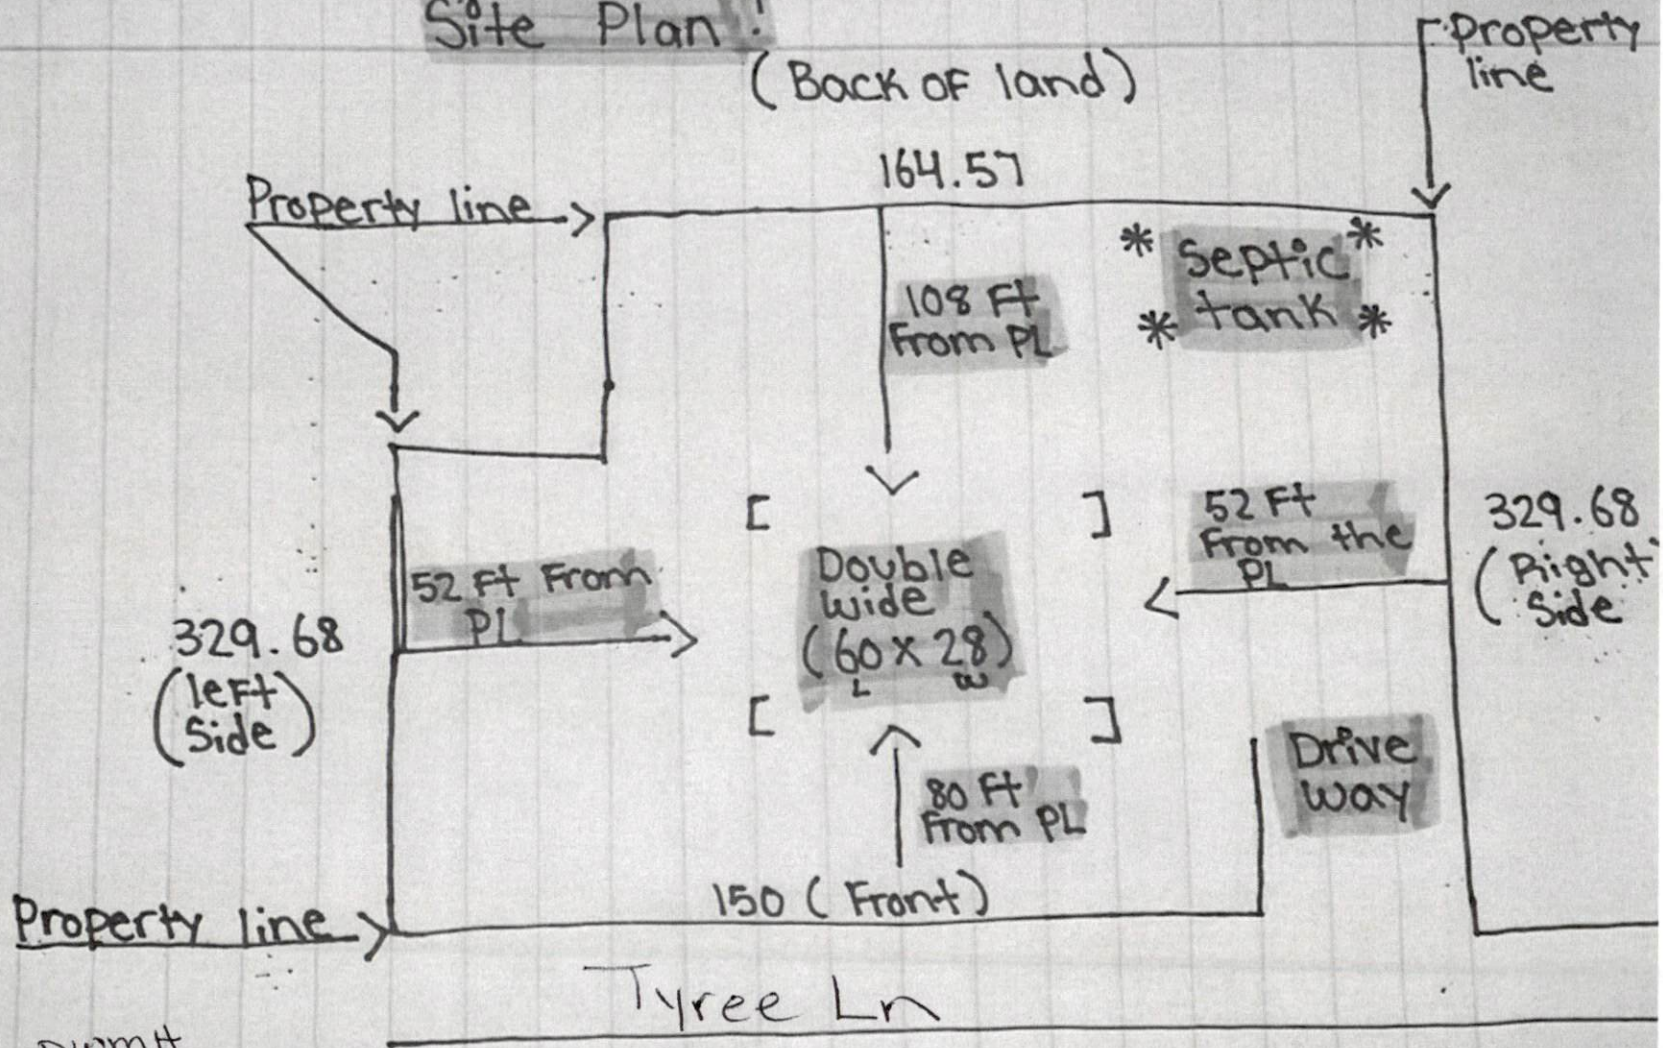 Site Plan!
(Back of land)
Property
line
164.57
Property line
* Septic *
* tank *
108 Ft
From PL
52 Ft
From the
PL
329.68
(Right
Side
52 Ft From
PL
Double
wide
(60 x 28)
L W
329.68
(left
Side)
Drive
way
80 Ft
From PL
150 (Front)
Property line
Tyree Ln